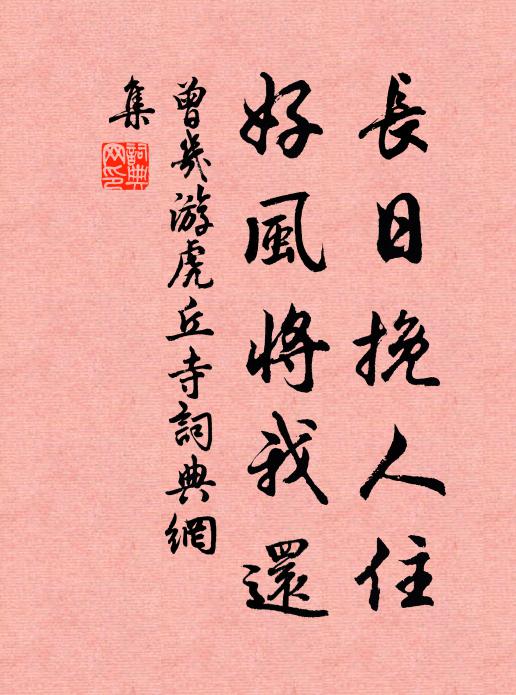 長日挽人住
好風將我還
曾幾游虎丘寺詞典網
集
詞典
网印